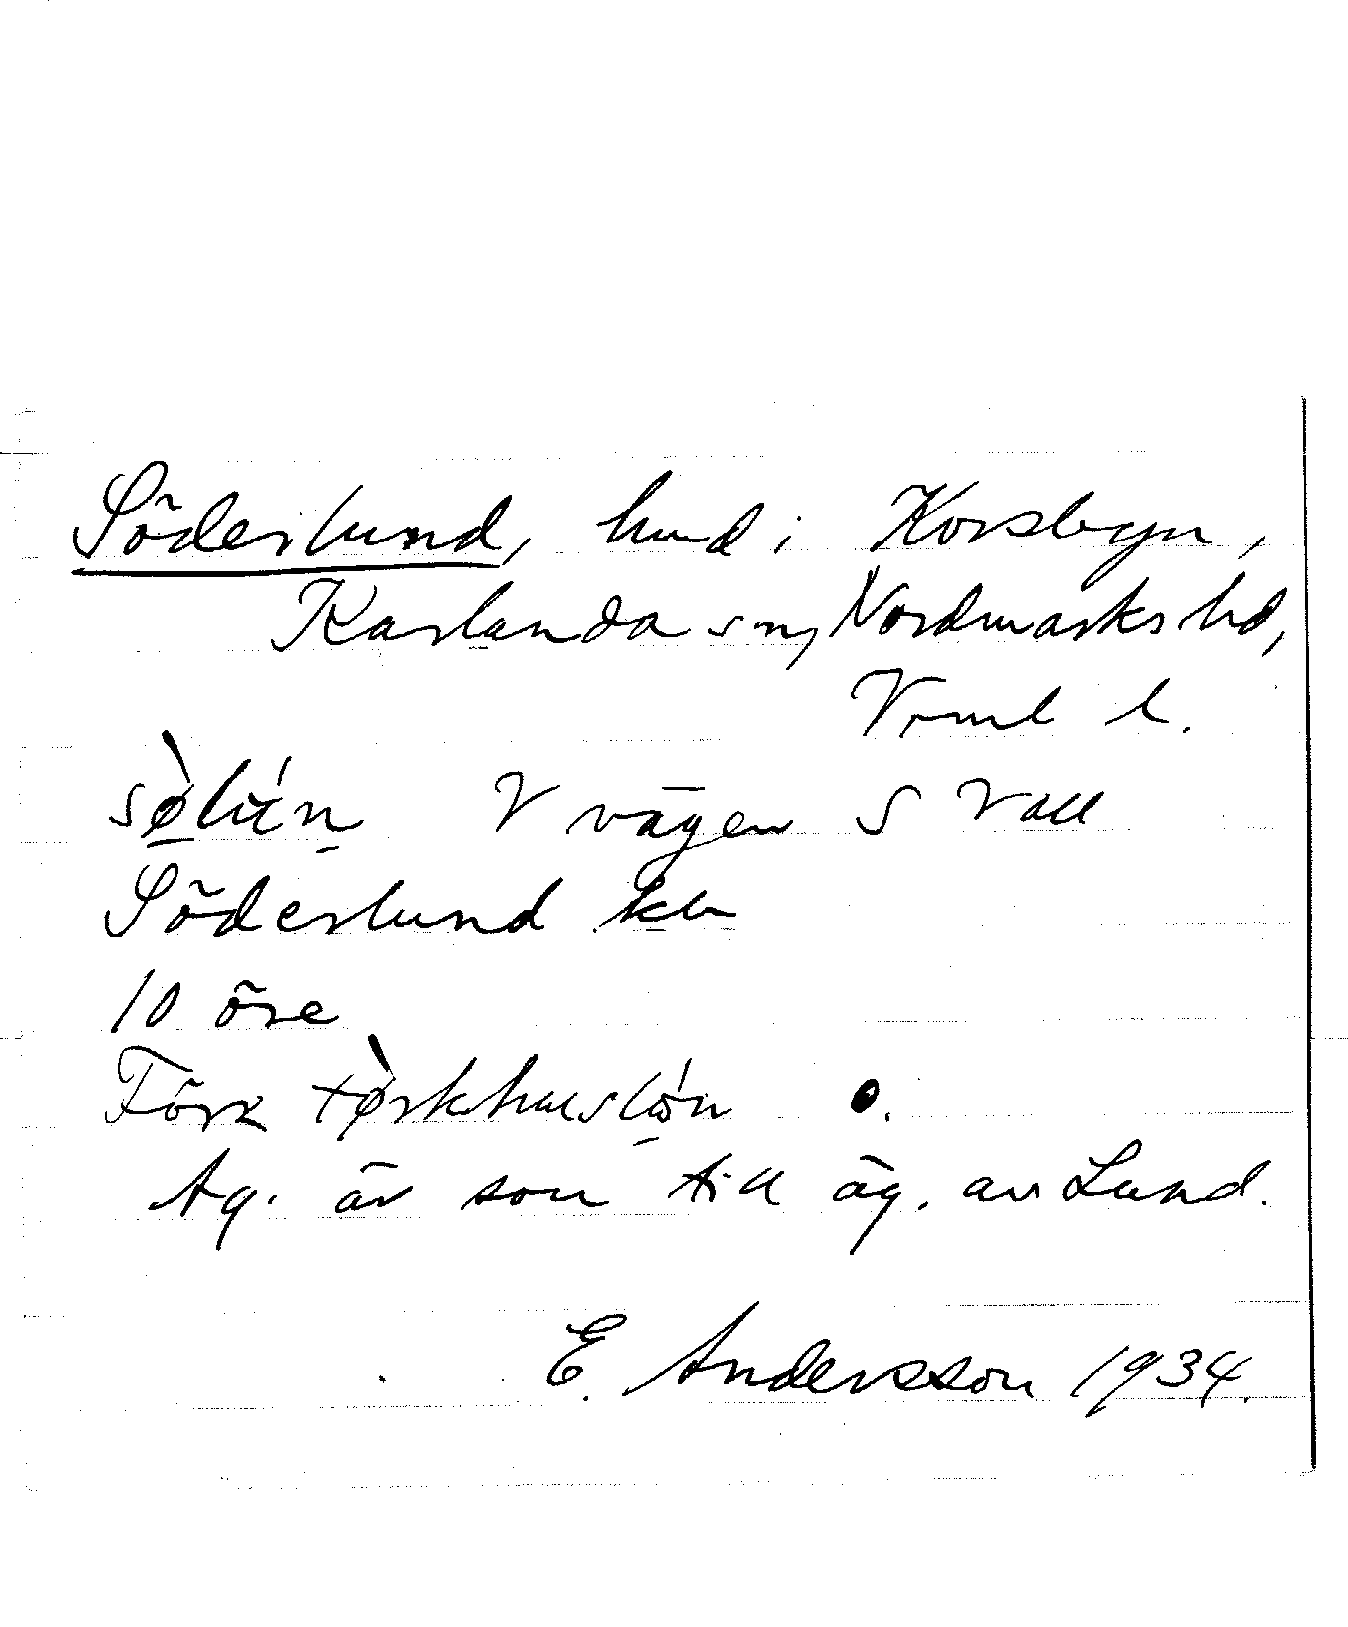 Söderlund, hmd i Korsbyn,
Karlanda sn, Nordmarks hd,
Vrml l.
V vägen S Vall
Söderlund kb
10 öre
Förr
Äg. är son till äg. av Lund.
E. Andersson 1934.